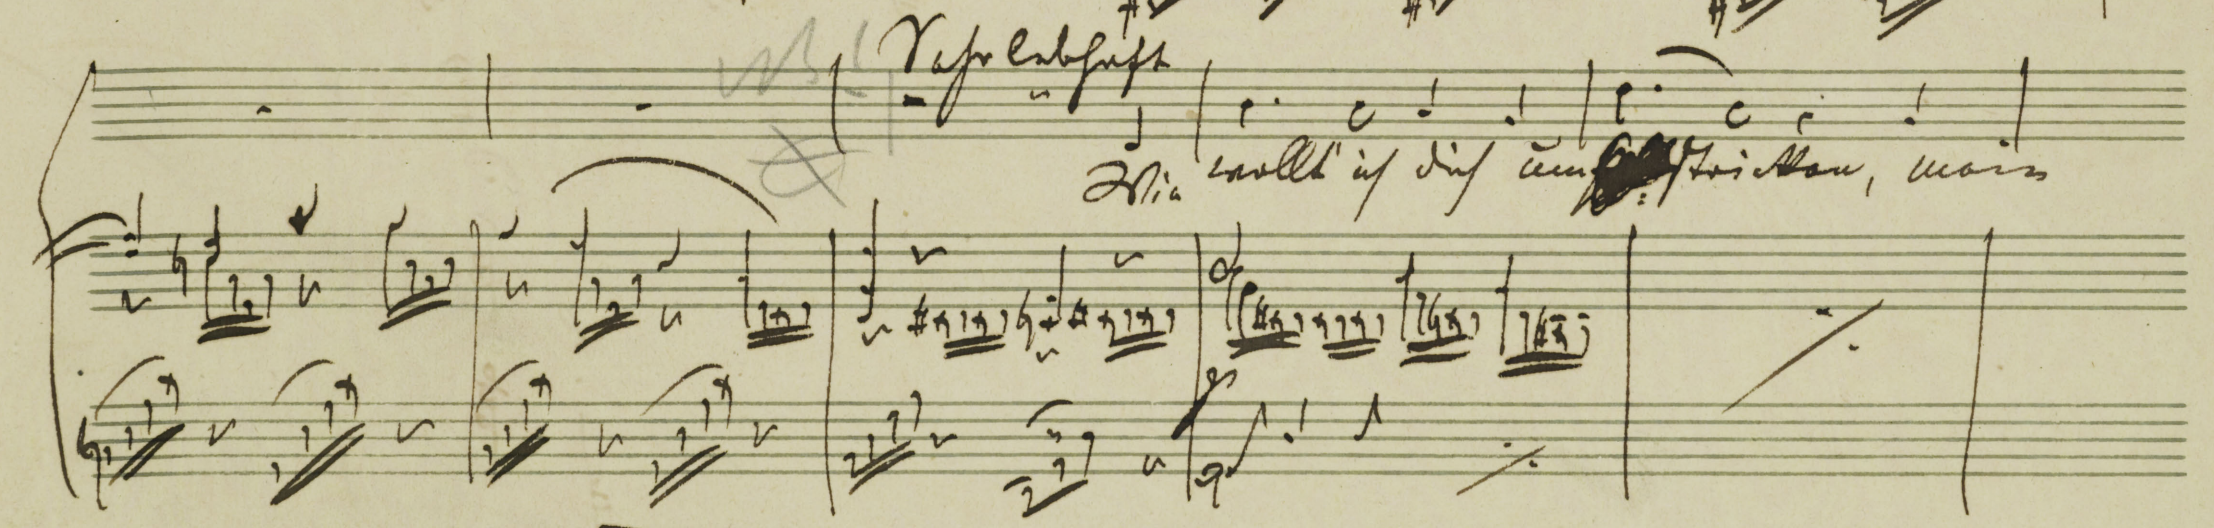 Sehr lebhaft
Wie wollt' ich dich umstricken, mein